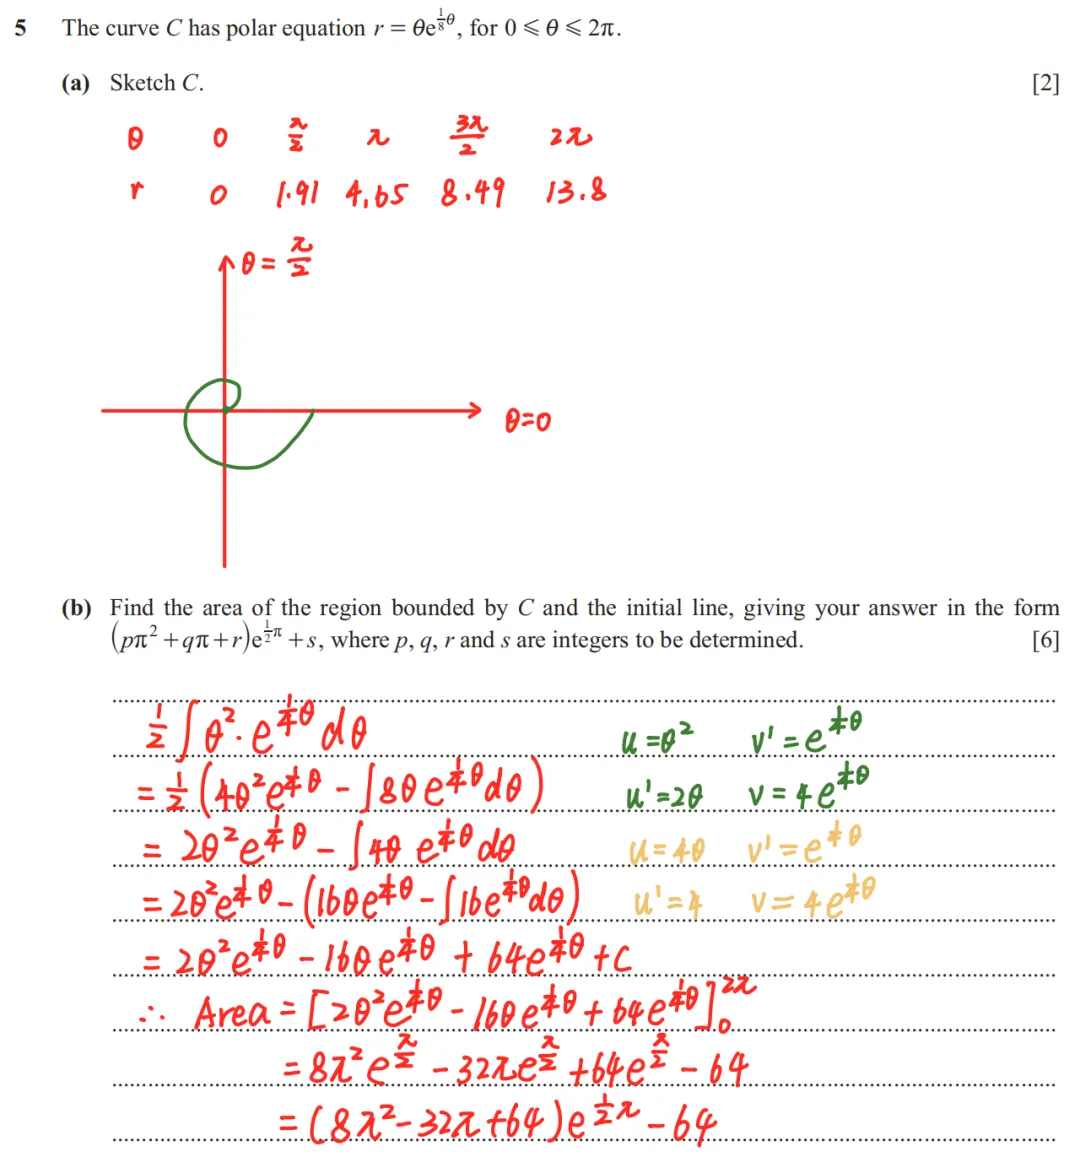 5 The curve C has polar equation r = θe^{\frac{1}{8}θ}, for 0 ⩽ θ ⩽ 2π.
(a) Sketch C. [2]
θ 0 \frac{π}{2} π \frac{3π}{2} 2π
r 0 1.91 4.65 8.49 13.8
θ = \frac{π}{2}
θ=0
(b) Find the area of the region bounded by C and the initial line, giving your answer in the form
(pπ² + qπ + r)e^{\frac{1}{2}π} + s, where p, q, r and s are integers to be determined. [6]
\frac{1}{2} ∫ θ² · e^{\frac{1}{4}θ} dθ u = θ² v' = e^{\frac{1}{4}θ}
= \frac{1}{2} (4θ²e^{\frac{1}{4}θ} − ∫8θ e^{\frac{1}{4}θ}dθ) u' = 2θ v = 4e^{\frac{1}{4}θ}
= 2θ²e^{\frac{1}{4}θ} − ∫4θ e^{\frac{1}{4}θ}dθ u = 4θ v' = e^{\frac{1}{4}θ}
= 2θ²e^{\frac{1}{4}θ} − (16θe^{\frac{1}{4}θ} − ∫16e^{\frac{1}{4}θ}dθ) u' = 4 v = 4e^{\frac{1}{4}θ}
= 2θ²e^{\frac{1}{4}θ} − 16θe^{\frac{1}{4}θ} + 64e^{\frac{1}{4}θ} + C
∴ Area = [2θ²e^{\frac{1}{4}θ} − 16θe^{\frac{1}{4}θ} + 64e^{\frac{1}{4}θ}]_{0}^{2π}
= 8π²e^{\frac{π}{2}} − 32πe^{\frac{π}{2}} + 64e^{\frac{π}{2}} − 64
= (8π² − 32π + 64)e^{\frac{1}{2}π} − 64